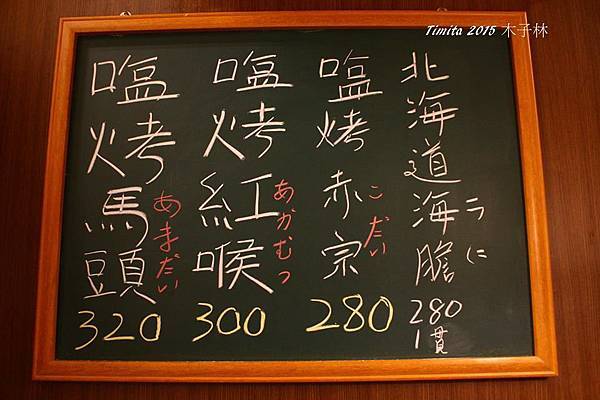 Timita 2015 木子林
北海道海膽
ラに
280
1貫
塩烤赤宗
こだい
280
塩烤紅喉
あかむつ
300
塩烤馬頭
あまだい
320